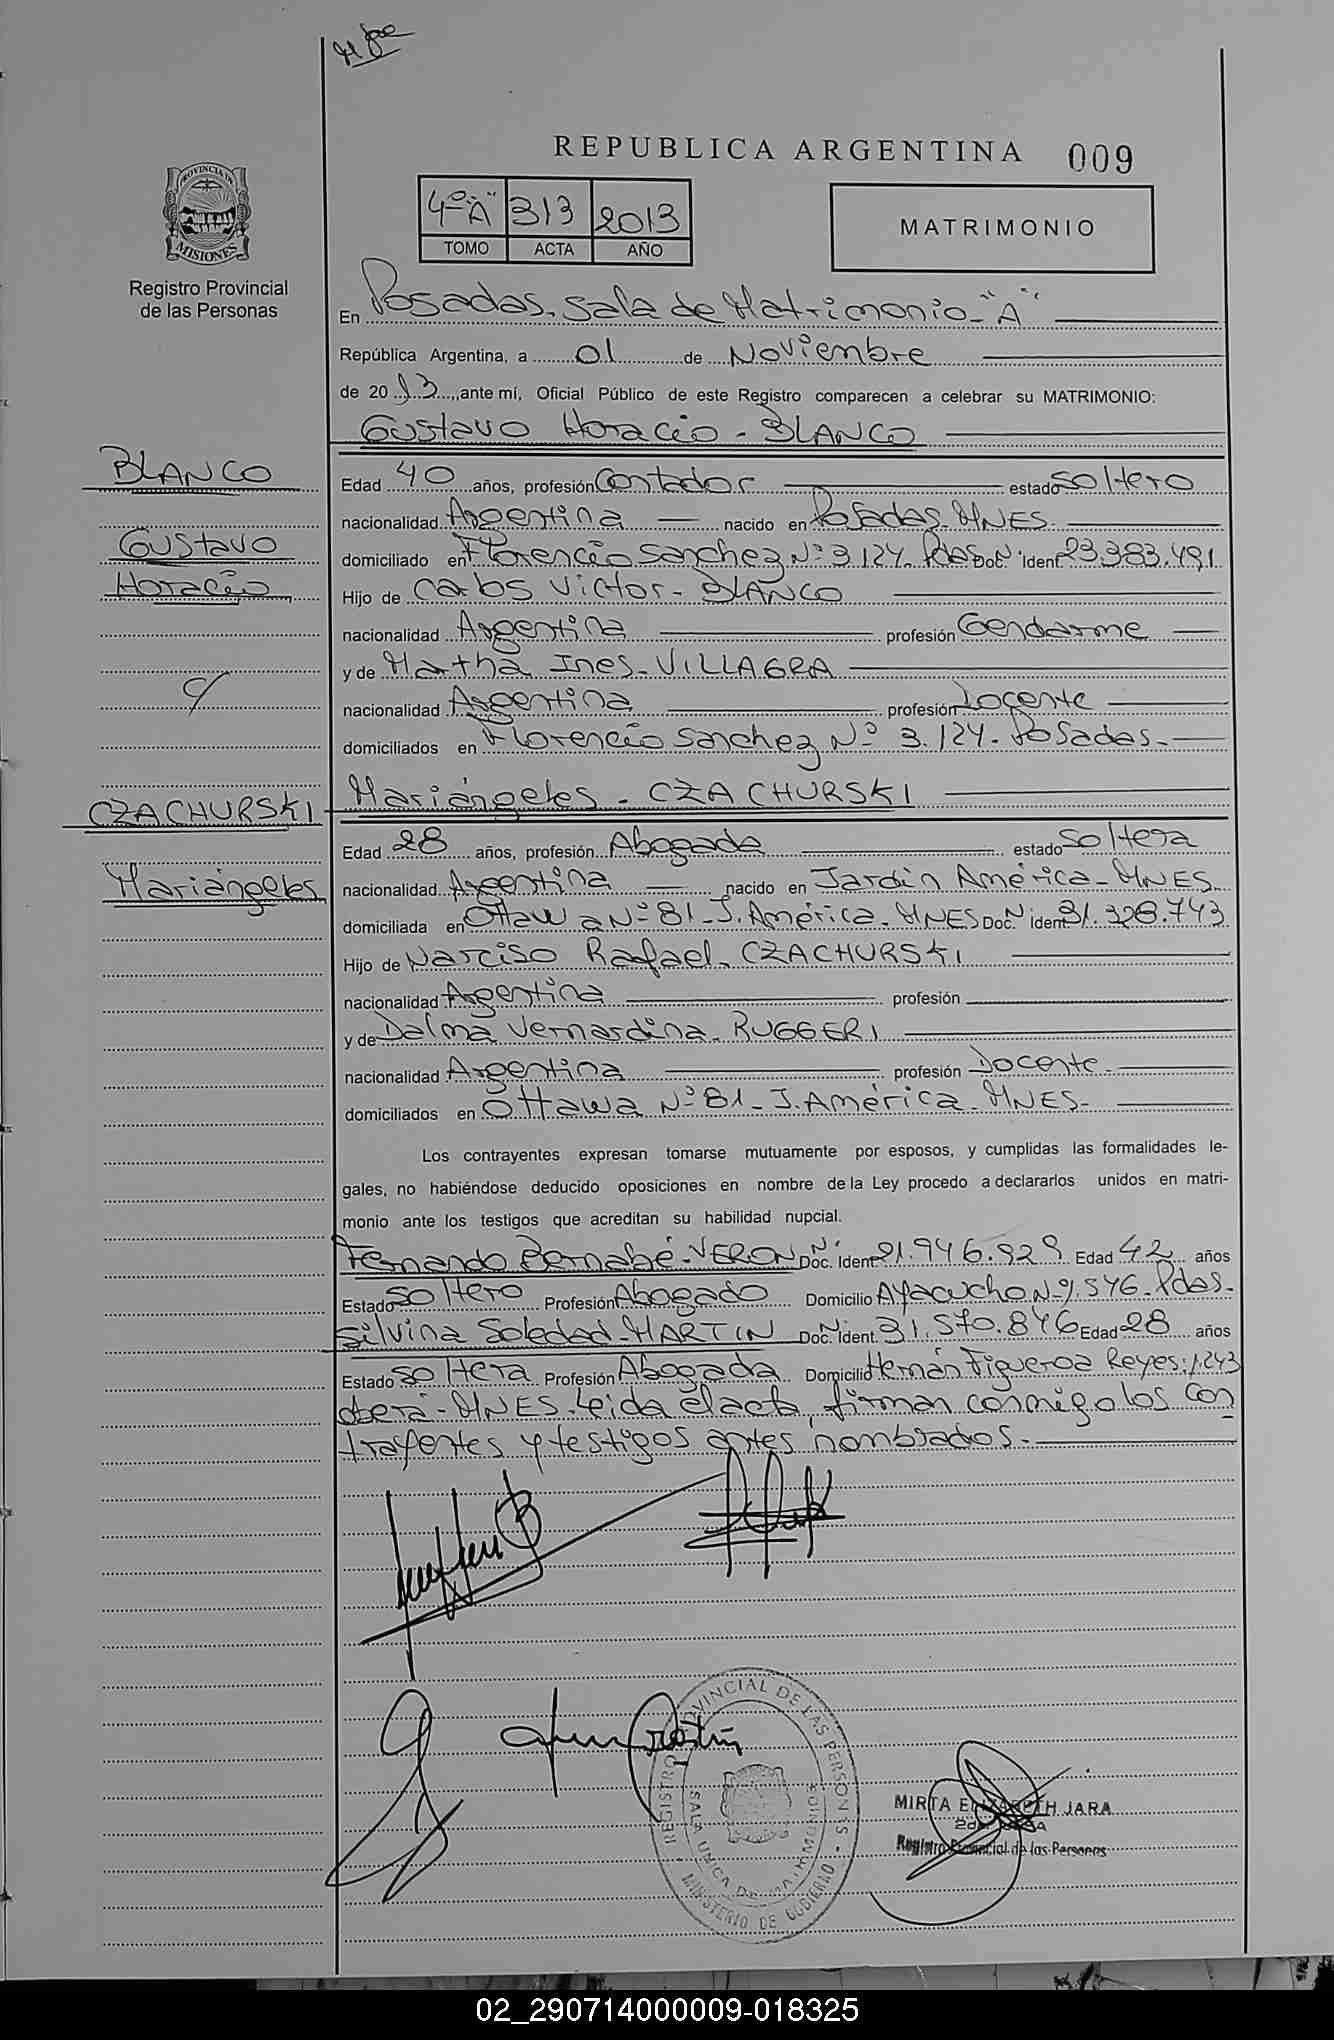 REPUBLICA ARGENTINA 009
PROVINCIA DE
MISIONES
Registro Provincial
de las Personas
4º "A" 313 2013
TOMO ACTA AÑO
MATRIMONIO
En Posadas. Sala de Matrimonio - "A"
República Argentina, a 01 de Noviembre
de 2013, ante mí, Oficial Público de este Registro comparecen a celebrar su MATRIMONIO:
Gustavo Horacio - BLANCO
BLANCO
Gustavo
Horacio
c/
CZACHURSKI
Mariángeles
Edad 40 años, profesión Contador estado soltero
nacionalidad Argentina nacido en Posadas. MNES.
domiciliado en Florencio Sanchez Nº 3.124. Pdas Doc. Nº Ident 23.383.491
Hijo de Carlos Victor - BLANCO
nacionalidad Argentina profesión Gendarme
y de Martha Ines - VILLAGRA
nacionalidad Argentina profesión Docente
domiciliados en Florencio Sanchez Nº 3.124. Posadas.
Mariángeles - CZACHURSKI
Edad 28 años, profesión Abogada estado soltera
nacionalidad Argentina nacido en Jardín América - MNES.
domiciliada en Ottawa Nº 81 - J. América. MNES Doc. Nº ident 31.328.743
Hijo de Narciso Rafael - CZACHURSKI
nacionalidad Argentina profesión
y de Dalma Vernardina - RUGGERI
nacionalidad Argentina profesión Docente
domiciliados en Ottawa Nº 81 - J. América. MNES.
Los contrayentes expresan tomarse mutuamente por esposos, y cumplidas las formalidades le-
gales, no habiéndose deducido oposiciones en nombre de la Ley procedo a declararlos unidos en matri-
monio ante los testigos que acreditan su habilidad nupcial.
Fernando Bernabé - VERON Doc. Nº Ident 21.946.929 Edad 42 años
Estado soltero Profesión Abogado Domicilio Ayacucho Nº 1.546. Pdas.
Silvina Soledad - MARTIN Doc. Nº Ident. 31.570.846 Edad 28 años
Estado soltera Profesión Abogada Domicilio Hernán Figueroa Reyes: 1.243
Oberá - MNES. Leida el acta, firman conmigo los con
trayentes y testigos antes nombrados.
REGISTRO PROVINCIAL DE LAS PERSONAS
SALA UNICA DE MATRIMONIOS
MINISTERIO DE GOBIERNO
MIRTA ELIZABETH JARA
Registro Provincial de las Personas
02_290714000009-018325